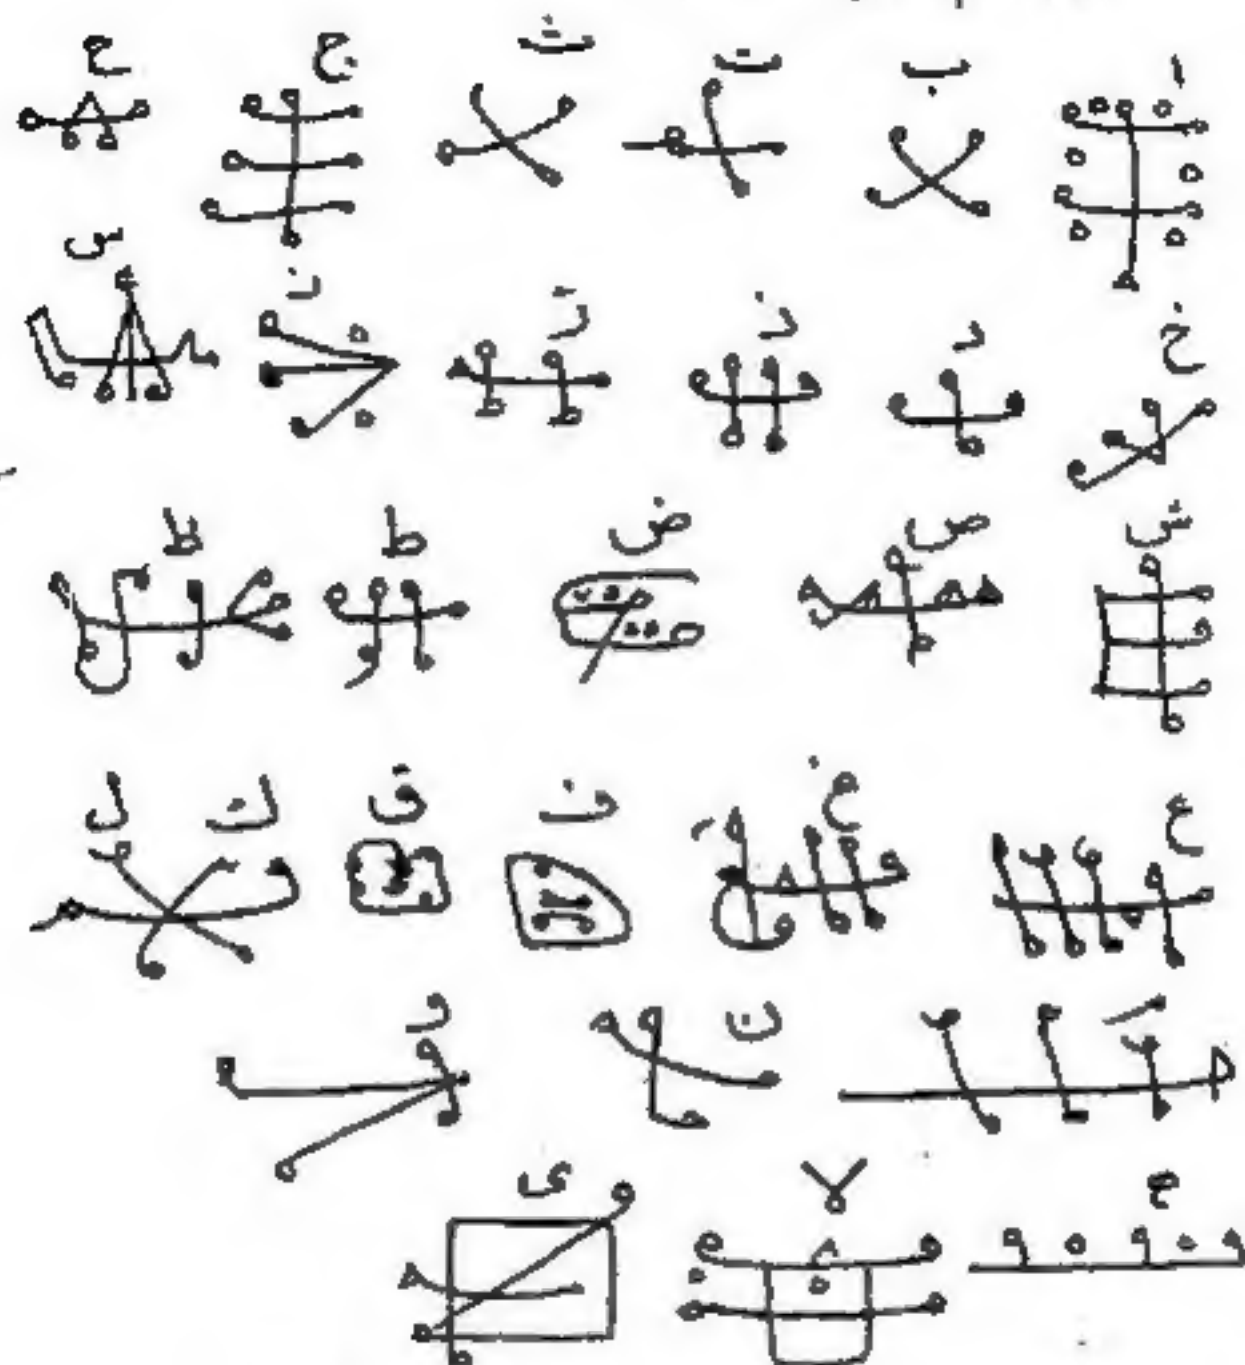 ا ب ت ث ج ح
خ د ذ ر ز س
ش ص ض ط ظ
ع غ ف ق ك ل
ن و
ه لا ى